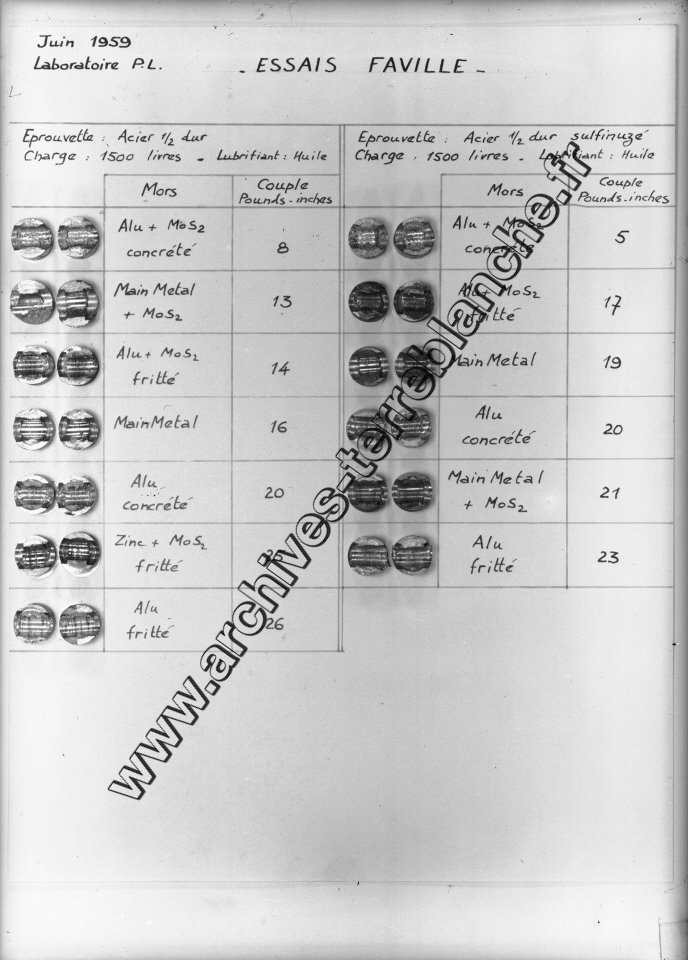 Juin 1959
Laboratoire P.L.
- ESSAIS FAVILLE -
Eprouvette : Acier 1/2 dur
Charge : 1500 livres - Lubrifiant : Huile
Mors
Couple
Pounds-inches
Alu + MoS2
concrété
8
Main Metal
+ MoS2
13
Alu + MoS2
fritté
14
Main Metal
16
Alu
concrété
20
Zinc + MoS2
fritté
Alu
fritté
26
Eprouvette : Acier 1/2 dur sulfinuzé
Charge : 1500 livres - Lubrifiant : Huile
Mors
Couple
Pounds-inches
Alu + MoS2
concrété
5
Alu + MoS2
fritté
17
Main Metal
19
Alu
concrété
20
Main Metal
+ MoS2
21
Alu
fritté
23
www.archives-terreblanche.fr